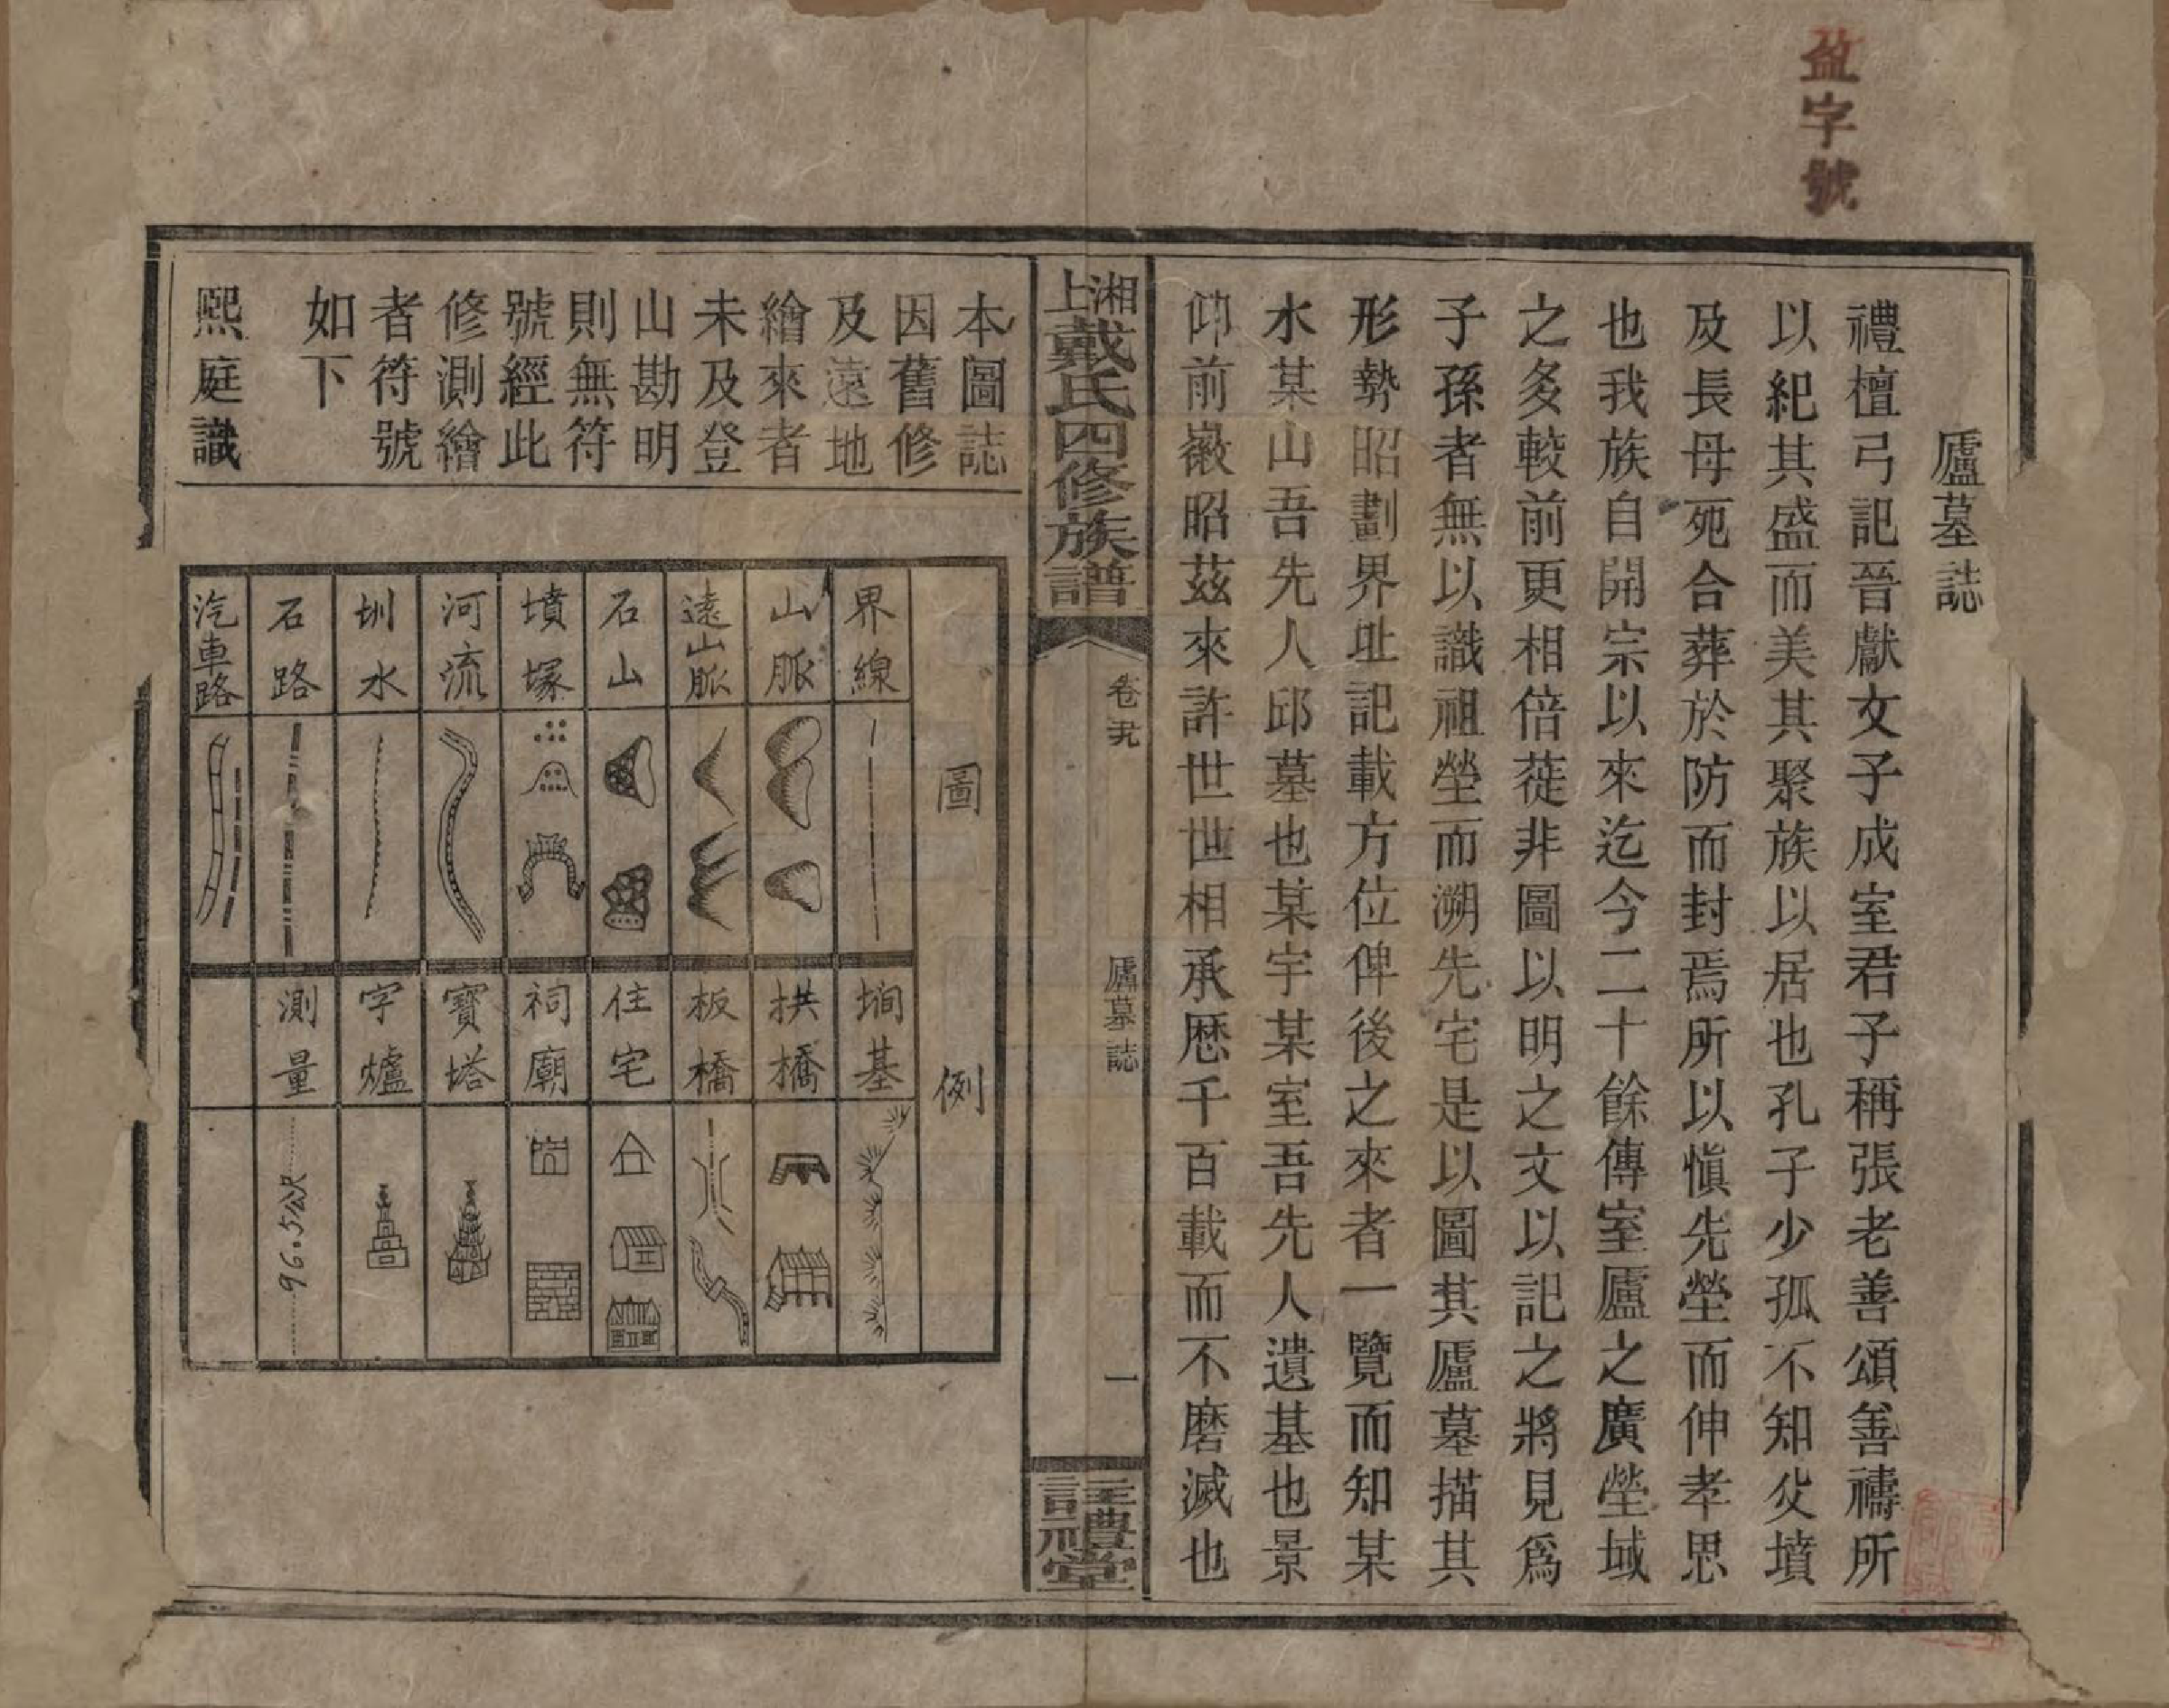 盈字號
廬墓誌
禮檀弓記晉獻文子成室君子稱張老善頌善禱所
以紀其盛而美其聚族以居也孔子少孤不知父墳
及長母死合葬於防而封焉所以愼先塋而伸孝思
也我族自開宗以來迄今二十餘傳室廬之廣塋域
之多較前更相倍蓰非圖以明之文以記之將見爲
子孫者無以識祖塋而溯先宅是以圖其廬墓描其
形勢昭劃界址記載方位俾後之來者一覽而知某
水某山吾先人邱墓也某宇某室吾先人遺基也景
仰前徽昭茲來許世世相承歷千百載而不磨滅也
湘上戴氏四修族譜
卷
廬墓誌
一
註禮堂
本圖誌
因舊修
及遠地
繪來者
未及登
山勘明
則無符
號經此
修測繪
者符號
如下
熙庭識
圖例
界線
山脈
遠山脈
石山
墳塚
河流
圳水
石路
汽車路
塥基
拱橋
板橋
住宅
祠廟
寶塔
字爐
測量
96.5公尺